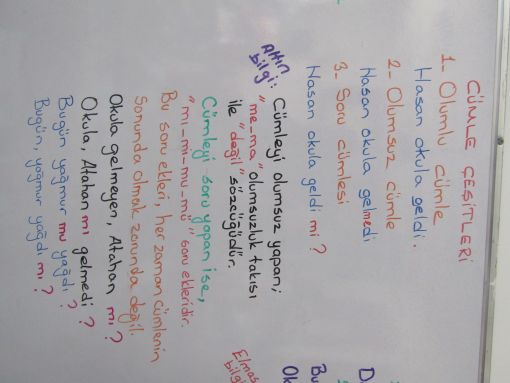 CÜMLE ÇEŞİTLERİ
1- Olumlu cümle
Hasan okula geldi.
2- Olumsuz cümle
Hasan okula gelmedi
3- Soru cümlesi
Hasan okula geldi mi ?
Altın bilgi: Cümleyi olumsuz yapan;
"me-ma" olumsuzluk takısı
ile "değil" sözcüğüdür.
Cümleyi soru yapan ise,
"mı-mi-mu-mü" soru ekleridir.
Bu soru ekleri, her zaman cümlenin
sonunda olmak zorunda değil.
Okula gelmeyen, Atahan mı?
Okula, Atahan mı gelmedi ?
Bugün yağmur mu yağdı ?
Bugün, yağmur yağdı mı ?
Elmas
bilgi
D
Bu
Ok